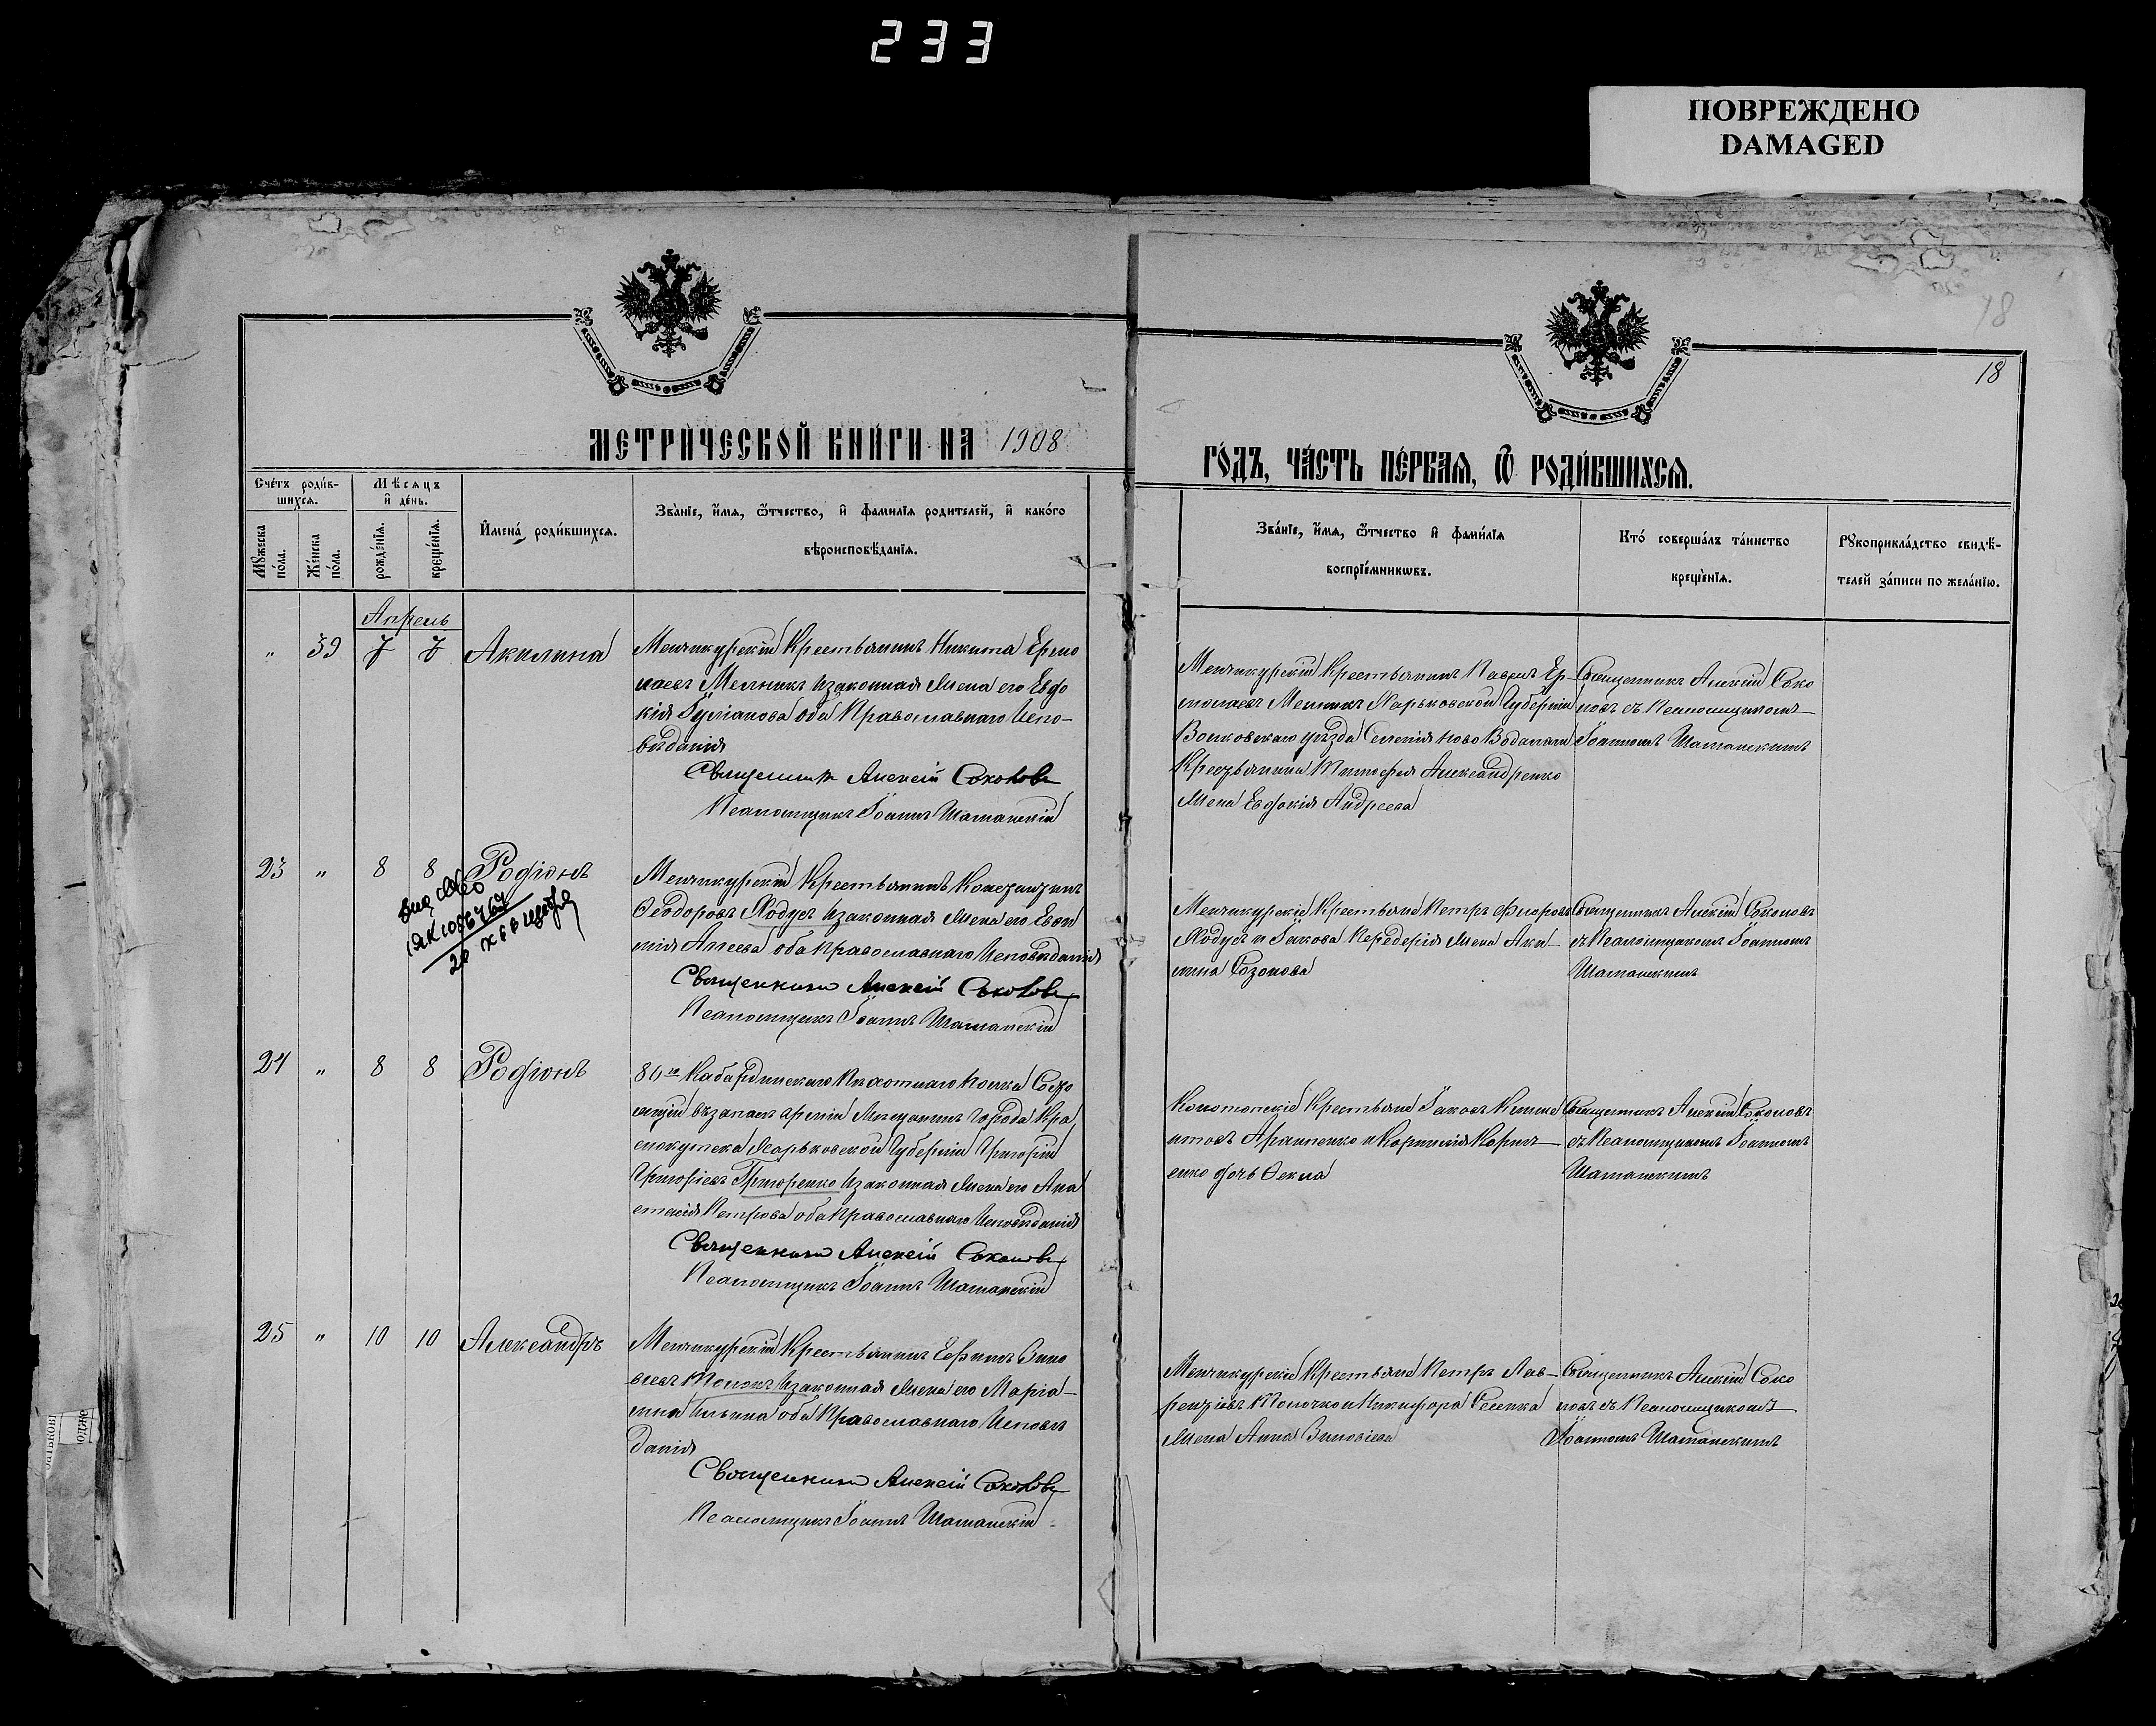 233
ПОВРЕЖДЕНО
DAMAGED
18
18
МЕТРИ́ЧЕСКОЙ КНИ́ГИ НА 1908
ГО́ДЪ, ЧА́СТЬ ПЕ́РВАЯ, Ѿ РОДИ́ВШИХСЯ.
Сче́тъ роди́в-
шихся.
Мѣ́сяцъ
и҆ де́нь.
Мꙋ́жеска
по́ла.
Же́нска
по́ла.
рожде́нїя.
креще́нїя.
И҆мена̀ роди́вшихся.
Зва́нїе, и҆́мя, ѻ҆́тчество, и҆ фами́лїя роди́телей, и҆ како́гѡ
вѣроисповѣ́данїя.
Зва́нїе, и҆́мя, ѻ҆́тчество и҆ фами́лїя
воспрїе́мникѡвъ.
Кто̀ соверша́лъ та́инство
креще́нїя.
Рꙋкоприкла́дство свидѣ́-
телей за́писи по жела́нїю.
Апрель
" 39 7 7 Акилина
Менчикурскій Крестьянинъ Никита Ермо
лаевъ Мельникъ и законная жена его Евдо
кія Іуліанова оба Православнаго Испо-
вѣданія
Священникъ Алексій Соколовъ
Псаломщикъ Іоаннъ Шаманскій
Менчикурскій Крестьянинъ Павелъ Ер-
молаевъ Мельникъ Харьковской Губерніи
Волковскаго уѣзда Селенія Ново Водолаги
Крестьянина Тимофея Александренко
жена Евдокія Андреева
Священникъ Алексій Соко
ловъ съ Псаломщикомъ
Іоанномъ Шаманскимъ
23 " 8 8 Родіонъ
Менчикурскій Крестьянинъ Константинъ
Ѳеодоровъ Ходусъ и законная жена его Евѳи
мія Алеева оба Православнаго Исповѣданія
Священникъ Алексій Соколовъ
Псаломщикъ Іоаннъ Шаманскій
Менчикурскіе Крестьяне Петръ Ѳеодоровъ
Ходусъ и Іакова Передерія жена Аки-
лина Созонова
Священникъ Алексій Соколовъ
съ Псаломщикомъ Іоанномъ
Шаманскимъ
24 " 8 8 Родіонъ
80го Кабардинскаго Пѣхотнаго полка Состо
ящій въ запасѣ арміи Мѣщанинъ города Кра
снокутска Харьковской Губерніи Григорій
Григорьевъ Григоренко и законная жена его Ана
стасія Петрова оба Православнаго Исповѣданія
Священникъ Алексій Соколовъ
Псаломщикъ Іоаннъ Шаманскій
Конотопскіе Крестьяне Іаковъ
Арапенко и Корнилія Корні-
енко дочь Ѳекла
Священникъ Алексій Соколовъ
съ Псаломщикомъ Іоанномъ
Шаманскимъ
25 " 10 10 Александръ
Менчикурскій Крестьянинъ Ефимъ Зино
віевъ и законная жена его Маріа-
мна Ильина оба Православнаго Исповѣ
данія
Священникъ Алексій Соколовъ
Псаломщикъ Іоаннъ Шаманскій
Менчикурскіе Крестьяне Петръ Лав-
рентіевъ Толочко и Никифора
жена Анна Зиновіева
Священникъ Алексій Соко
ловъ съ Псаломщикомъ
Іоанномъ Шаманскимъ